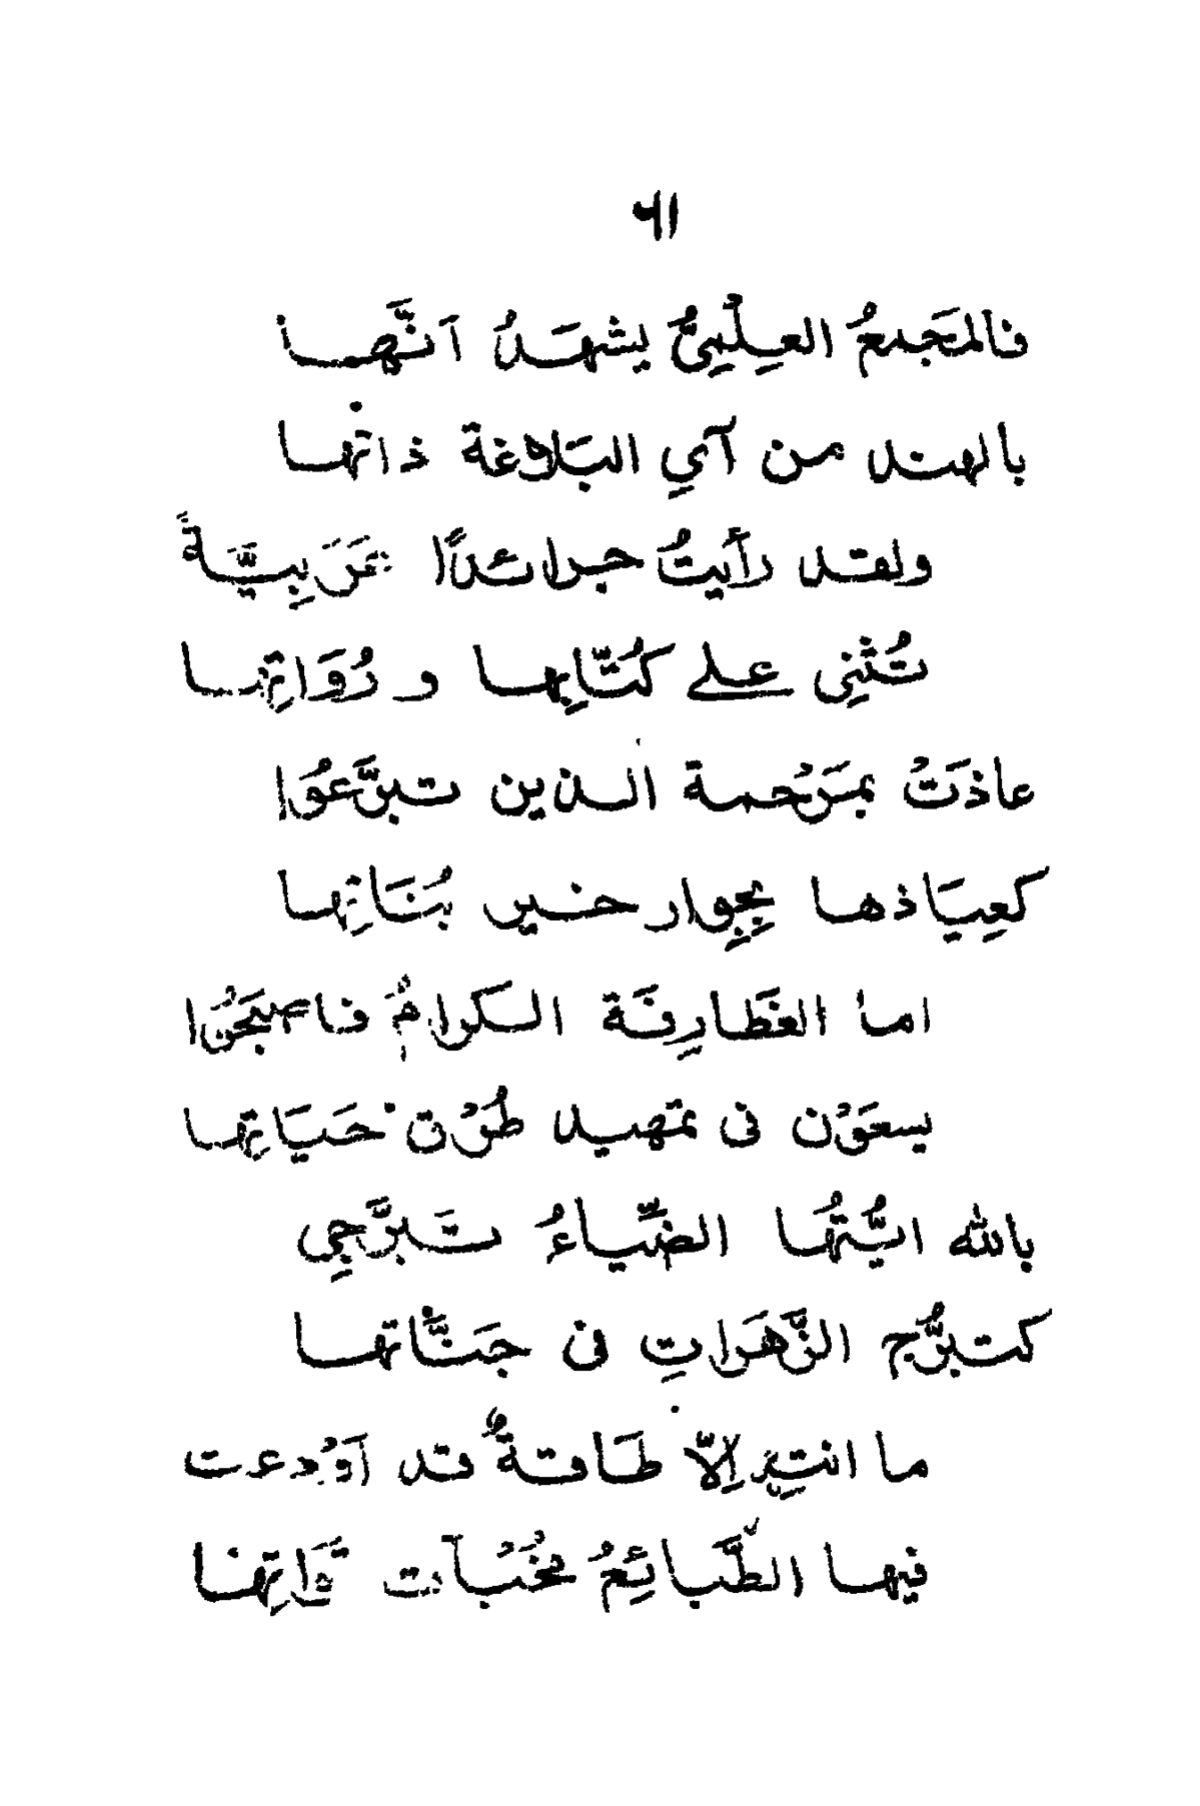 ٦١
فالمَجمعُ العِلْمِيُّ يشهَدُ اَنَّهما
بالهند من آيِ البَلاغة ذاتها
ولقد رأَيتُ جرائدًا عَرَبِيَّةً
تُثنِى على كُتَّابِها و رُوَاتِها
عاذَتْ بمَرْحمة الذين تبرَّعُوا
كعِيَاذها بِجِوار خير بُنَاتِها
اما الغَطارِفَة الكرامُ فاصبَحُوا
يسعَوْن فى تمهيد طُرْق حَيَاتِها
بالله ايَّتُها الضِّياءُ تَبرَّجِي
كتبرُّج الزَّهَراتِ فى جَنَّاتها
ما انتِ اِلاّ طَاقةٌ قد اَوْدعت
فيها الطَّبائِعُ مُخْبآت نَوَاتِها